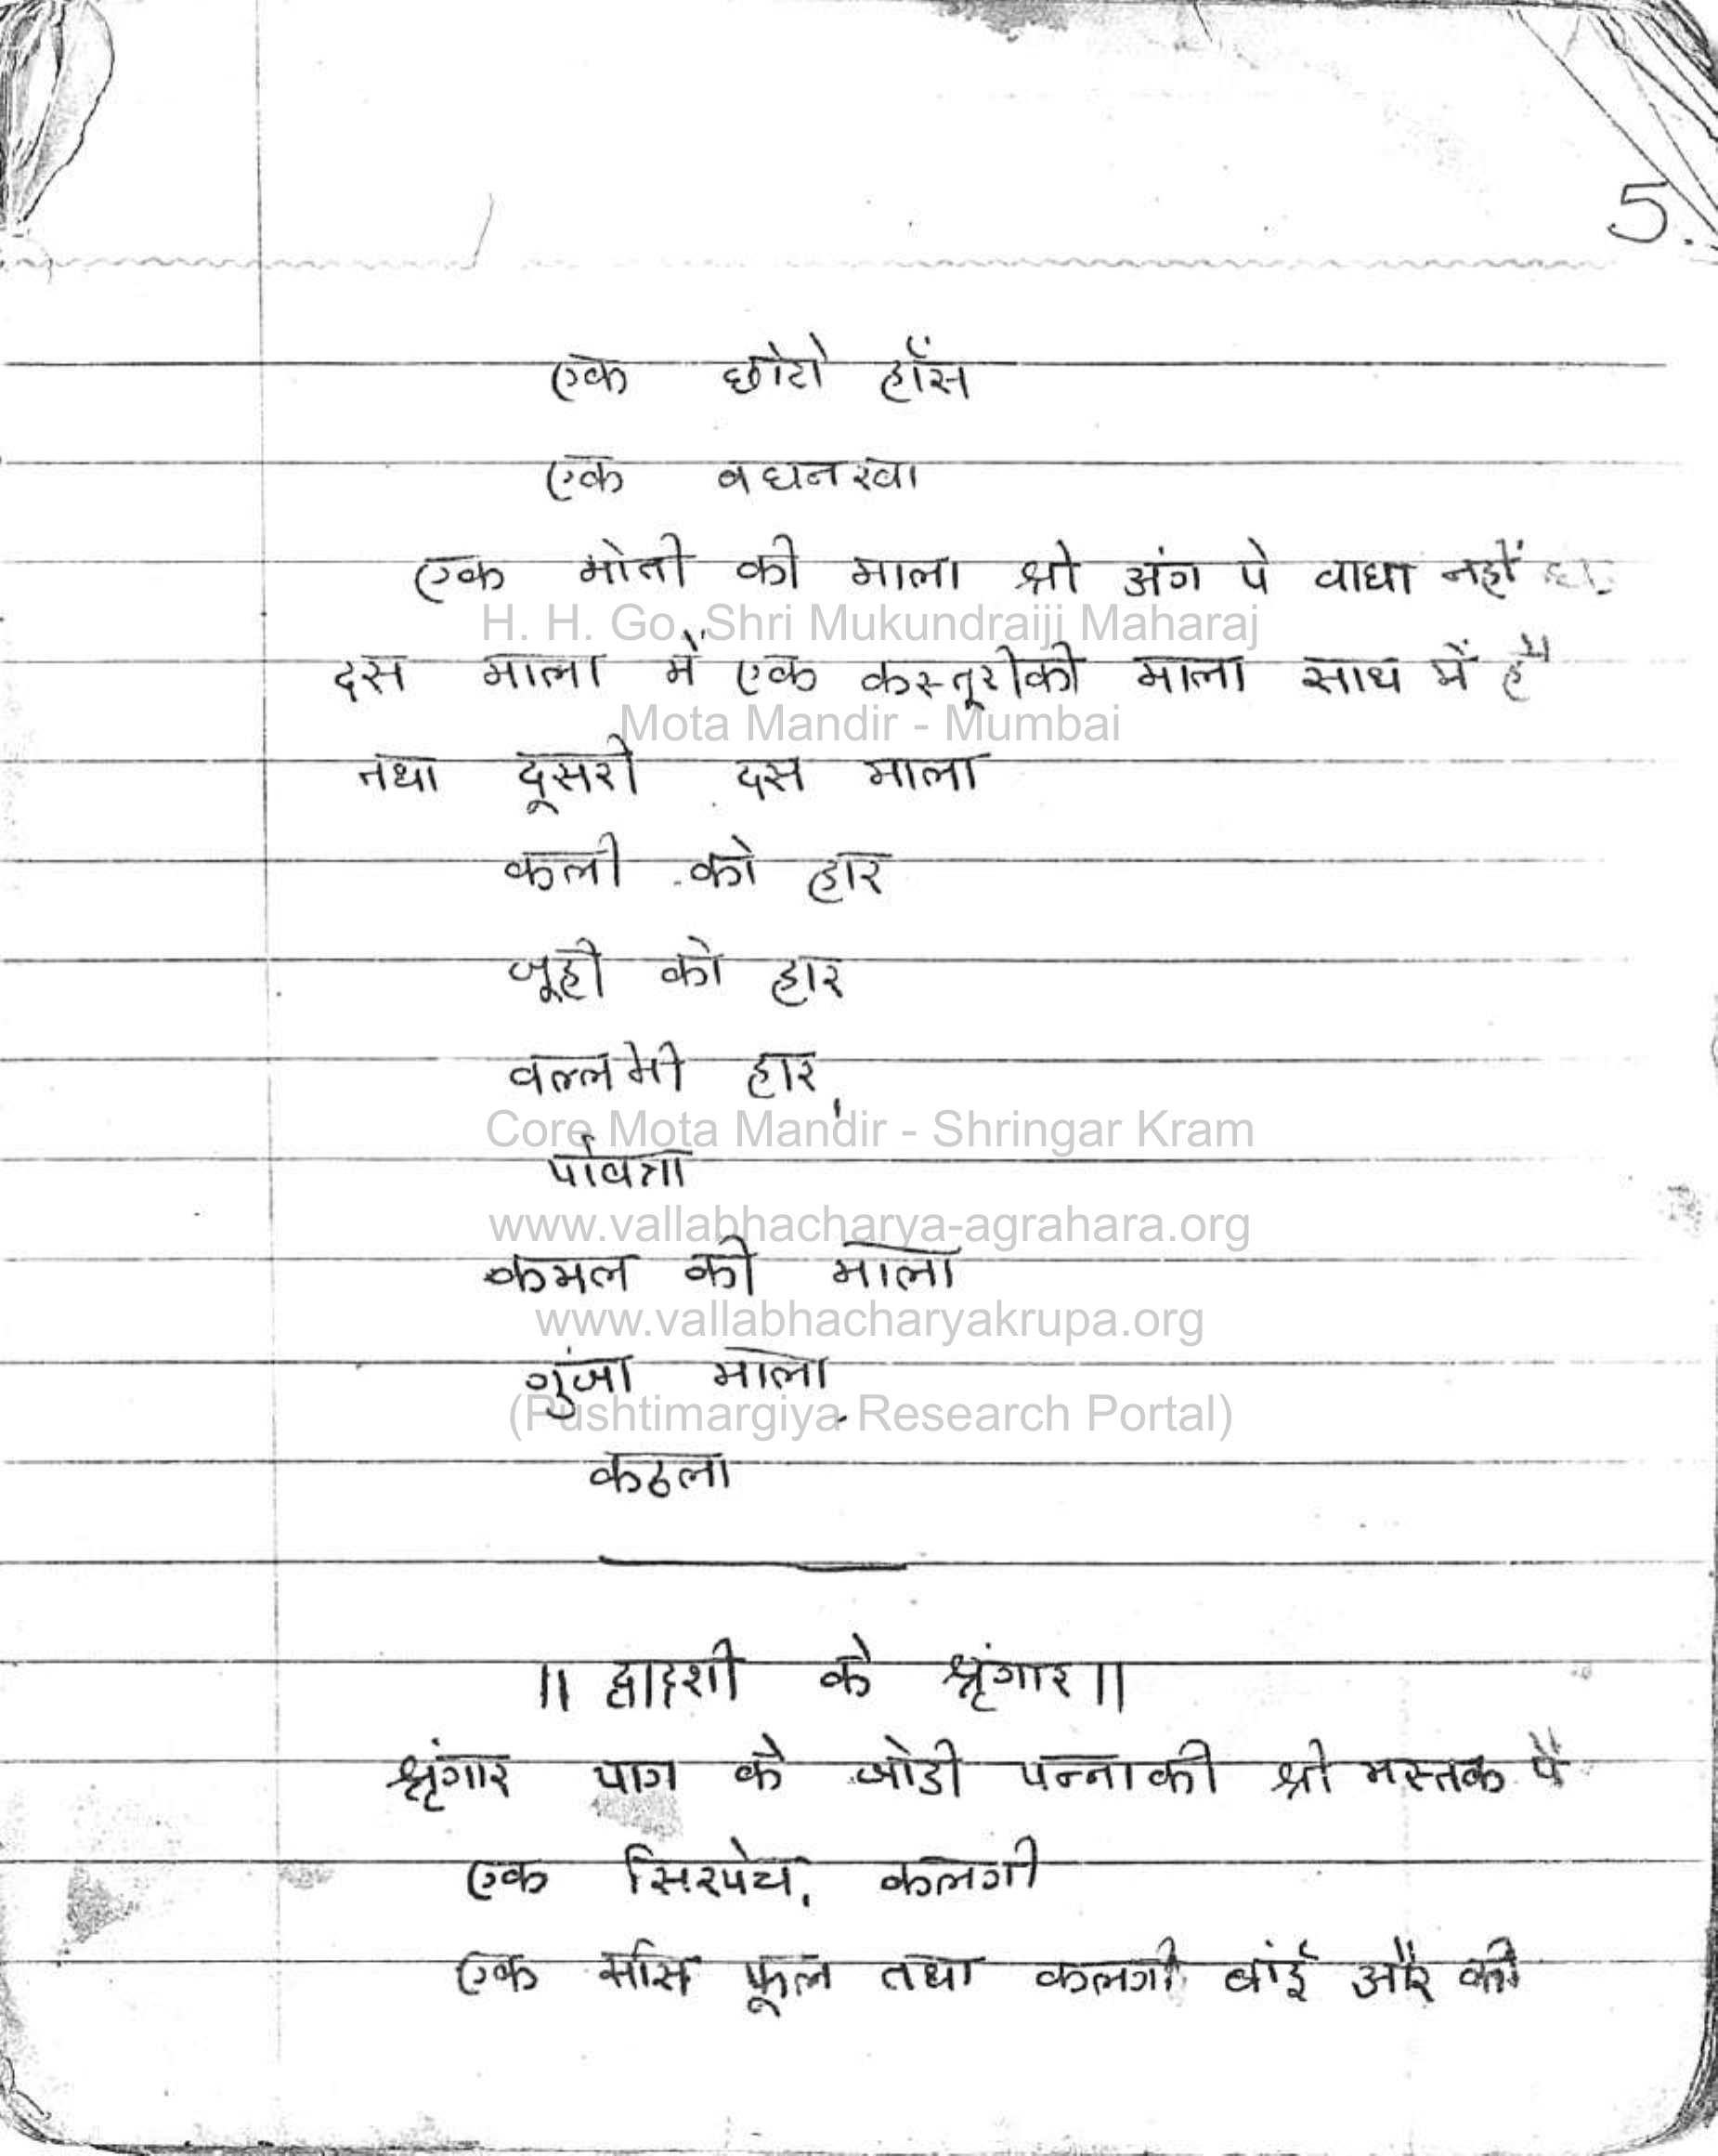 5.
एक छोटो हाँस
एक वघनखा
एक मोती की माला श्री अंग पे वाघा नहीं
H. H. Go. Shri Mukundraiji Maharaj
दस माला में एक कस्तूरीकी माला साथ में है
Mota Mandir - Mumbai
तथा दूसरी दस माला
कली को हार
जूही को हार
वल्लभी हार,
Core Mota Mandir - Shringar Kram
पवित्रा
www.vallabhacharya-agrahara.org
कमल की माला
www.vallabhacharyakrupa.org
गुंजा माला
(Pushtimargiya Research Portal)
कठला
॥ द्वादशी के श्रृंगार ॥
श्रृंगार पाग के जोडी पन्नाकी श्री मस्तक पै
एक सिरपेच, कलगी
एक सीस फूल तथा कलगी बांई और की